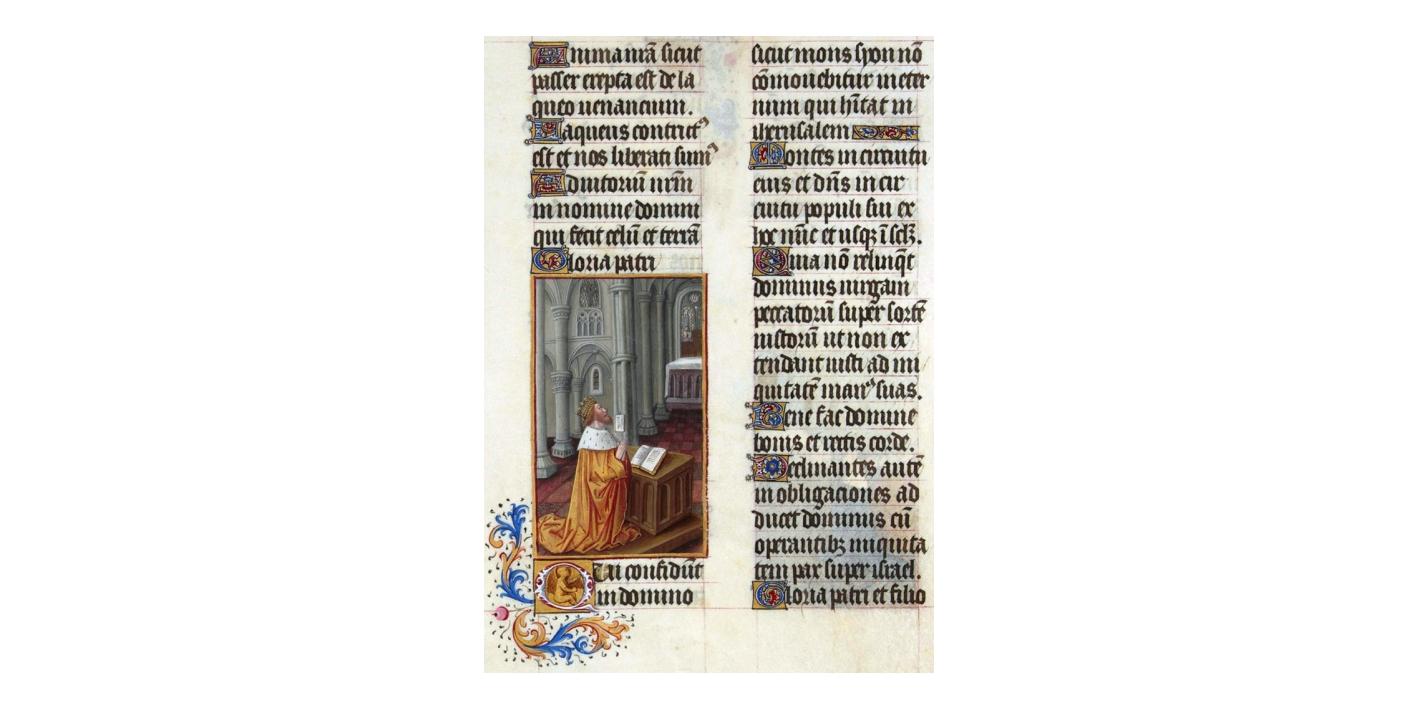 Anima nr̃ã sicut
passer erepta est de la
queo uenancium.
Laqueus contrict⁹
est et nos liberati sum⁹
Adiutoriũ nr̃m
in nomine domini
qui fecit celũ et terrã
Gloria patri
Qui confidũt
in domino
sicut mons syon nõ
cõmouebitur in eter
num qui hĩtat in
iherusalem
Montes in circuitu
eius et dñs in cir
cuitu populi sui ex
hoc nũc et usqꝫ ĩ sclꝫ.
Quia nõ relinq̃t
dominus uirgam
peccatorũ super sortẽ
iustorũ ut non ex
tendant iusti ad ini
quitatẽ man⁹ suas.
Bene fac domine
bonis et rectis corde.
Declinantes autẽ
in obligaciones ad
ducet dominus cũ
operantibꝫ iniquita
tem pax super israel.
Gloria patri et filio